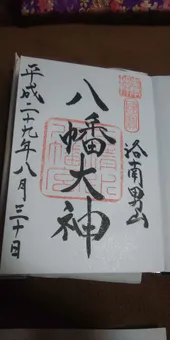 洛南男山
八幡大神
平成二十九年八月三十日